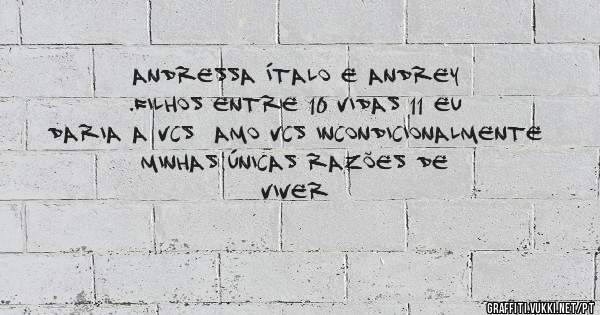 ANDRESSA ÍTALO E ANDREY
.FILHOS ENTRE 10 VIDAS 11 EU
DARIA A VCS AMO VCS INCONDICIONALMENTE
MINHAS ÚNICAS RAZÕES DE
VIVER
GRAFFITI.VUKKI.NET/PT